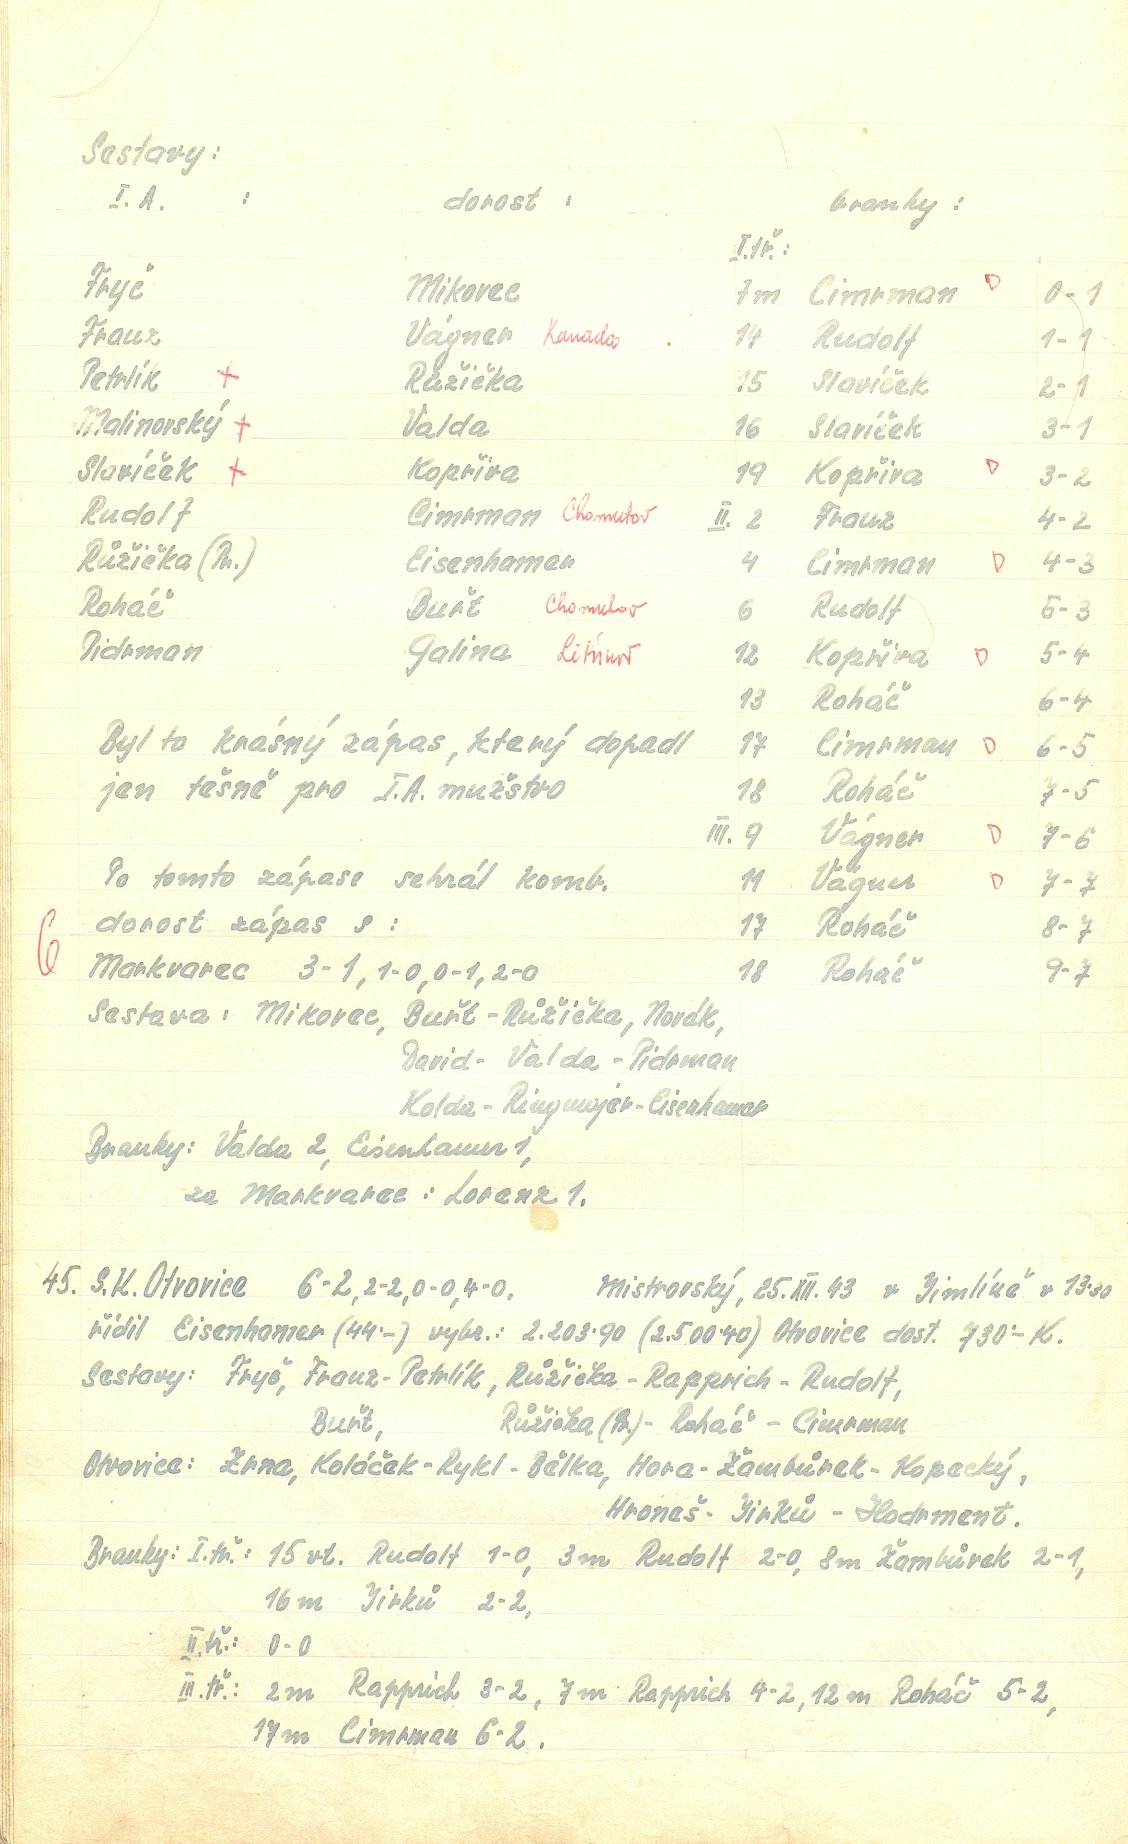 Sestavy:
I. A. : dorost : branky :
I.tř.:
Fryč Mikovec 7m Cimrman D 0-1
Franz Vágner Kanada . 14 Rudolf 1-1
Petrlík + Růžička 15 Slavíček 2-1
Malinovský + Valda 16 Slavíček 3-1
Slavíček + Kopřiva 19 Kopřiva D 3-2
Rudolf Cimrman Chomutov II. 2 Franz 4-2
Růžička (Pr.) Eisenhamer 4 Cimrman D 4-3
Roháč Buřt Chomutov 6 Rudolf 5-3
Pidrman Galina Litvínov 12 Kopřiva D 5-4
13 Roháč 6-4
Byl to krásný zápas, který dopadl 17 Cimrman D 6-5
jen těsně pro I.A. mužstvo 18 Roháč 7-5
III. 9 Vágner D 7-6
Po tomto zápase sehrál komb. 11 Vágner D 7-7
dorost zápas s : 17 Roháč 8-7
6 Markvarec 3-1, 1-0, 0-1, 2-0 18 Roháč 9-7
Sestava : Mikovec, Buřt - Růžička, Novák,
David - Valda - Pidrman
Kolda - Ringmajer - Eisenhamer
Branky: Valda 2, Eisenhamer 1,
za Markvarec : Lorenz 1.
45. S.K. Otvovice 6-2, 2-2, 0-0, 4-0. Mistrovský, 25.XII.43 v Jimlíně v 13·30
řídil Eisenhamer (44·-) vybr.: 2.203·90 (2.500·40) Otvovice dost. 730·- K.
Sestavy: Fryč, Franz - Petrlík, Růžička - Rapprich - Rudolf,
Buřt, Růžička (Pr.) - Roháč - Cimrman
Otvovice: Zrna, Koláček - Rykl - Bělka, Hora - Žambůrek - Kopecký,
Hroneš - Jirků - Hodrment.
Branky: I.tř.: 15 vt. Rudolf 1-0, 3m Rudolf 2-0, 8m Žambůrek 2-1,
16 m Jirků 2-2,
II.tř.: 0-0
III.tř.: 2m Rapprich 3-2, 7m Rapprich 4-2, 12 m Roháč 5-2,
17 m Cimrman 6-2.